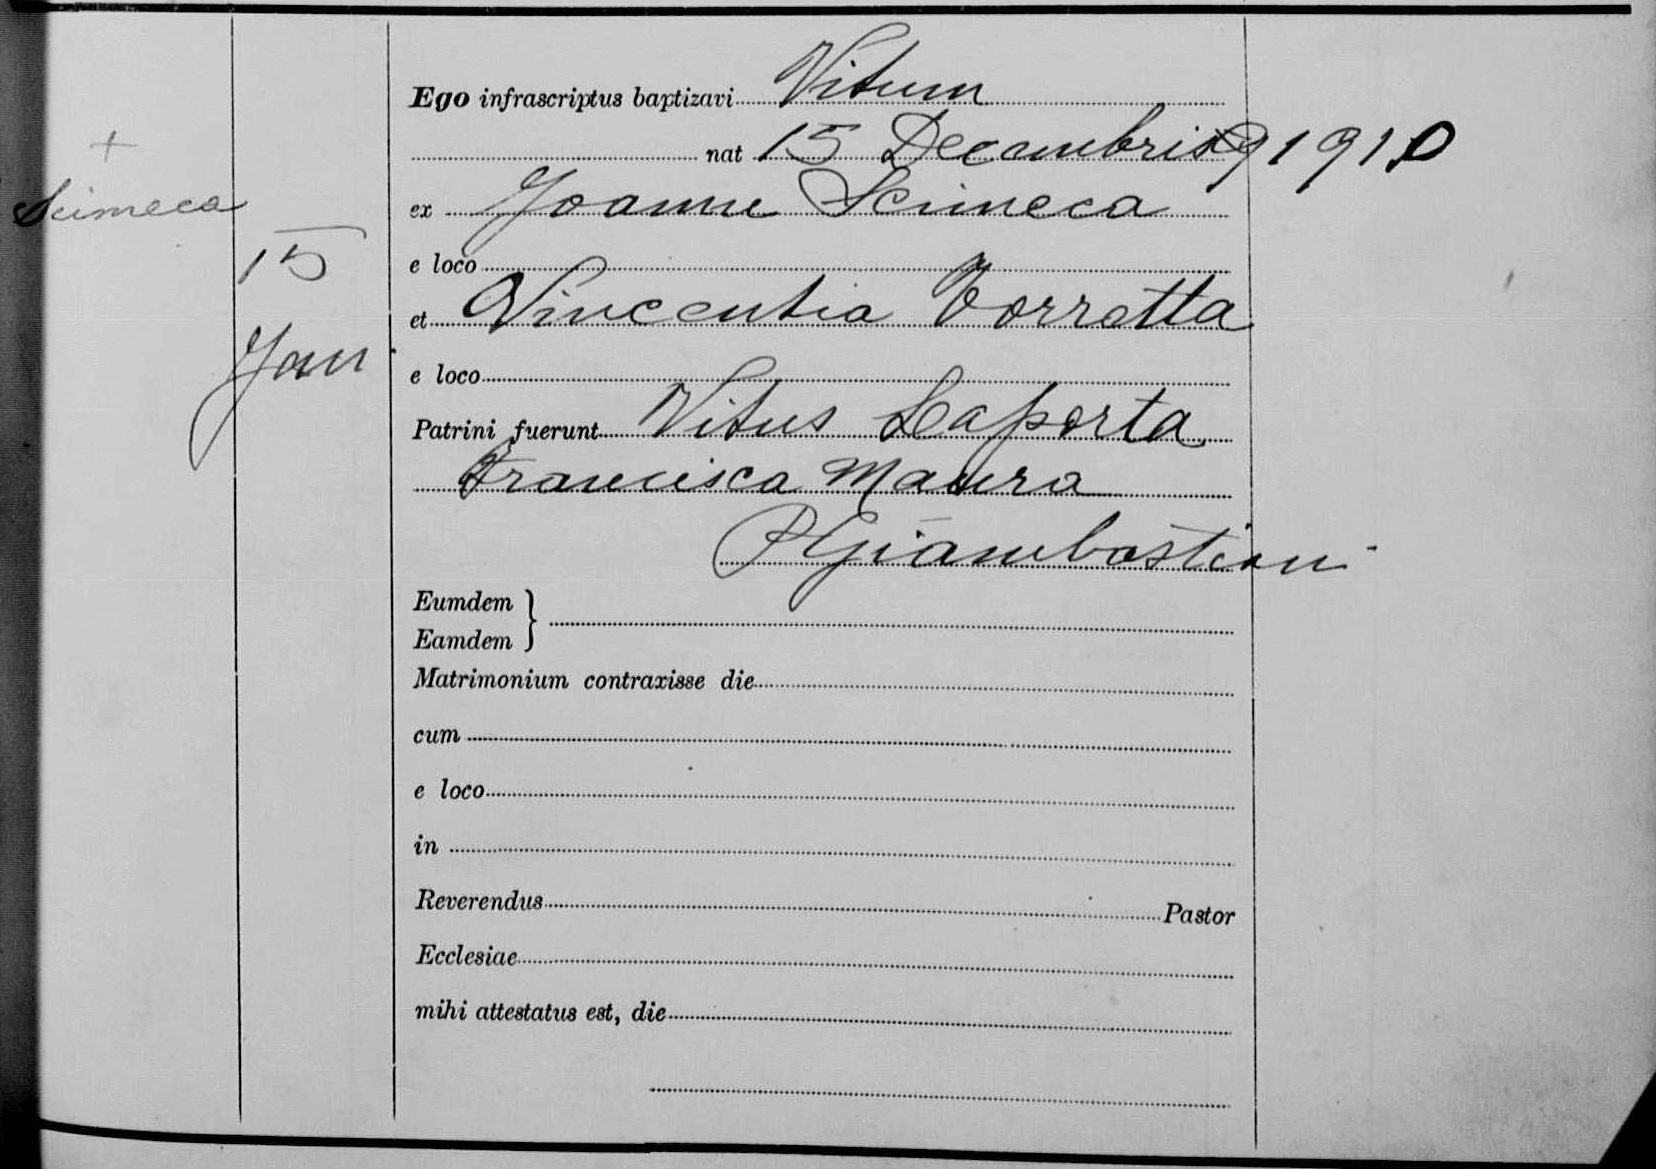 +
Scimeca
15
Jan
Ego infrascriptus baptizavi Vitum
nat 15 Decembris 1910
ex Joanne Scimeca
e loco
et Vincentia Torretta
e loco
Patrini fuerunt Vitus Laporta
Francisca Maura
PGiambastiani
Eumdem
Eamdem
Matrimonium contraxisse die
cum
e loco
in
Reverendus Pastor
Ecclesiae
mihi attestatus est, die